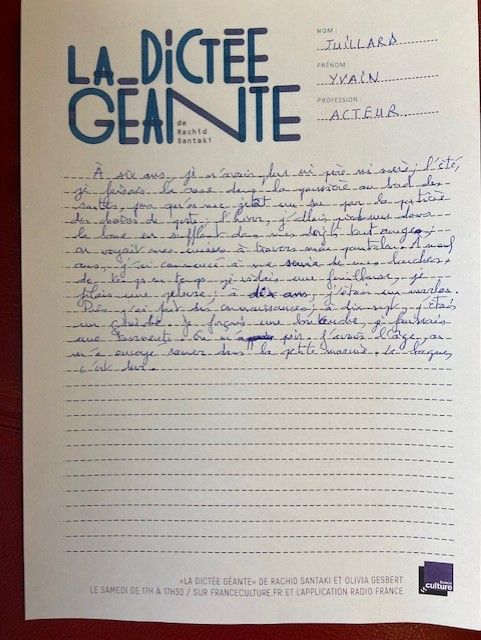 LA DICTÉE
GÉANTE
de
Rachid
Santaki
NOM
JUILLARD
PRÉNOM
YVAIN
PROFESSION
ACTEUR
À six ans, je n'avais plus ni père ni mère; l'été,
je faisais la rose dans la poussière au bout des
routes, pour qu'on me jetât un sou par la portière
des chaises de poste; l'hiver, j'allais pieds nus dans
la boue en soufflant dans mes doigts tout rouges;
on voyait mes cuisses à travers mon pantalon. À neuf
ans, j'ai commencé à me servir de mes louches.
De temps en temps, je vidais une fouillouse, je
filais une pelure; à dix ans, j'étais un marlou.
Puis j'ai fait des connaissances; à dix-sept, j'étais
un cambrio. Je forçais une boutanche, je faussais
une tournante. On m'a pris. J'avais l'âge, on
m'a envoyé ramer dans la petite marine. Le bagne,
c'est dur.
«LA DICTÉE GÉANTE» DE RACHID SANTAKI ET OLIVIA GESBERT
LE SAMEDI DE 17H À 17H30 / SUR FRANCECULTURE.FR ET L'APPLICATION RADIO FRANCE
france
culture